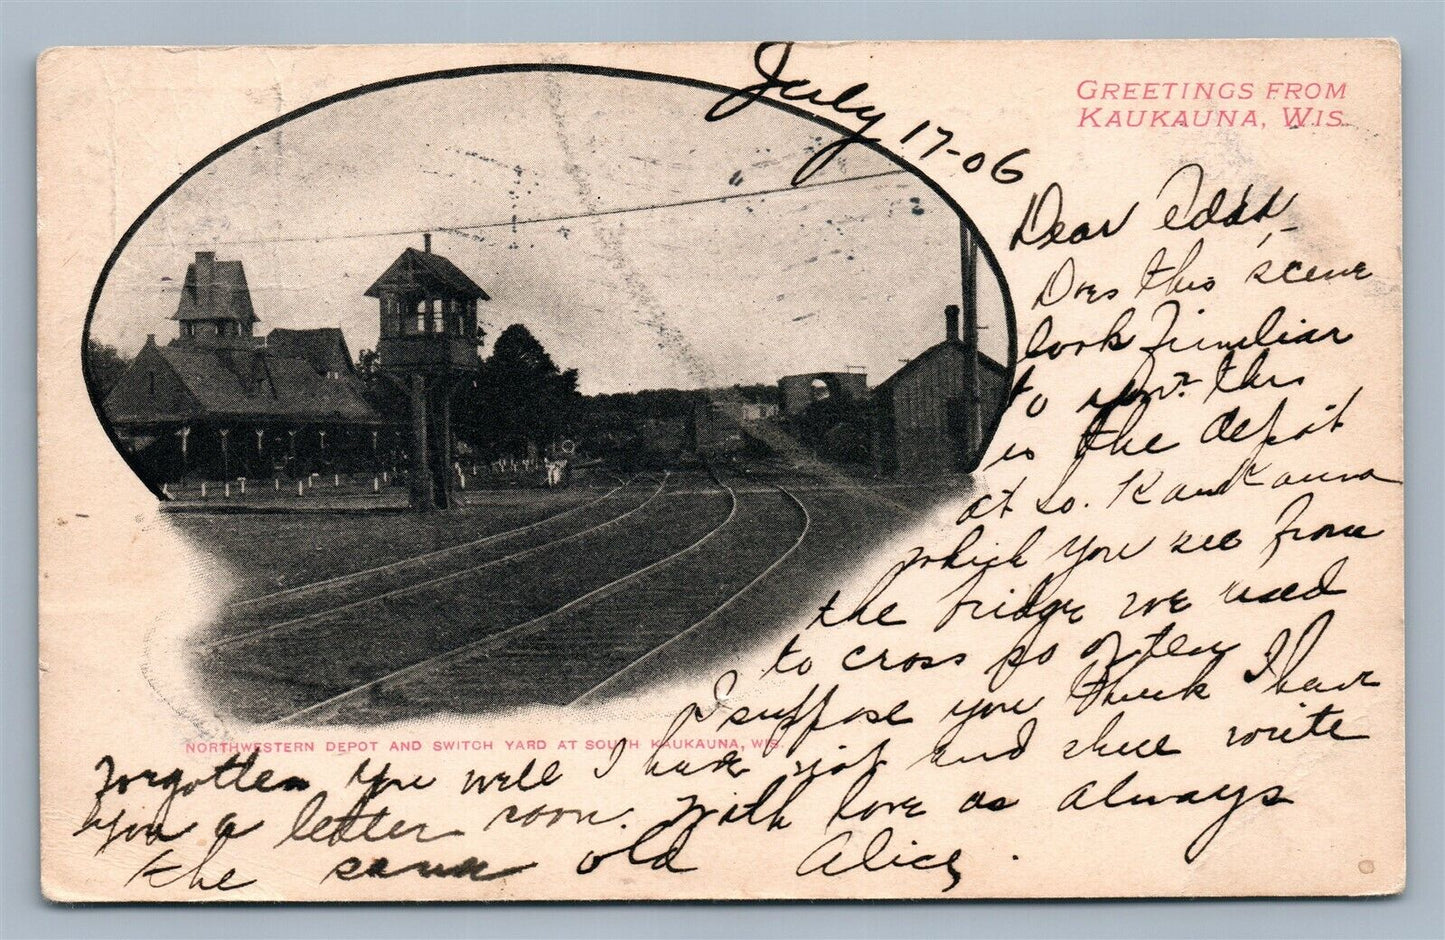 July 17-06
GREETINGS FROM
KAUKAUNA, WIS.
Dear
Does this scene
look Fimiliar
to this
is the depot
at So. Kaukauna
which you see from
the bridge we used
to cross so often
I suppose you think I have
NORTHWESTERN DEPOT AND SWITCH YARD AT SOUTH KAUKAUNA, WIS.
Forgotten you well I have not and shall write
you a letter soon. With love as always
the same old Alice.